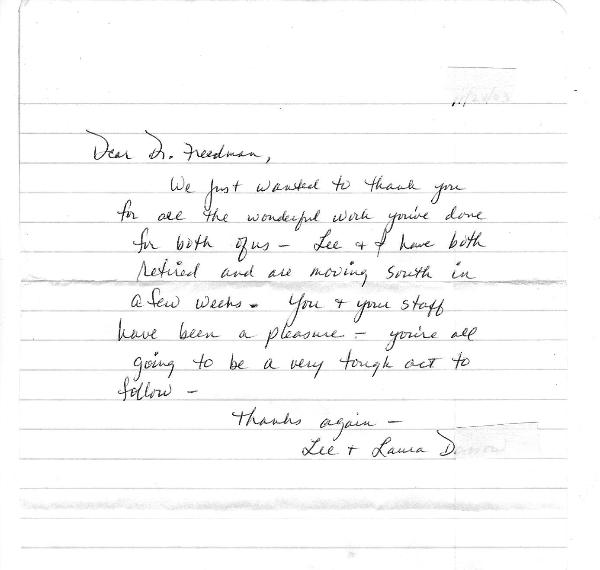 Dear Dr. Freedman,
We just wanted to thank you
for all the wonderful work you've done
for both of us – Lee + I have both
retired and are moving south in
a few weeks. You + your staff
have been a pleasure – you're all
going to be a very tough act to
follow –
Thanks again –
Lee + Laura D